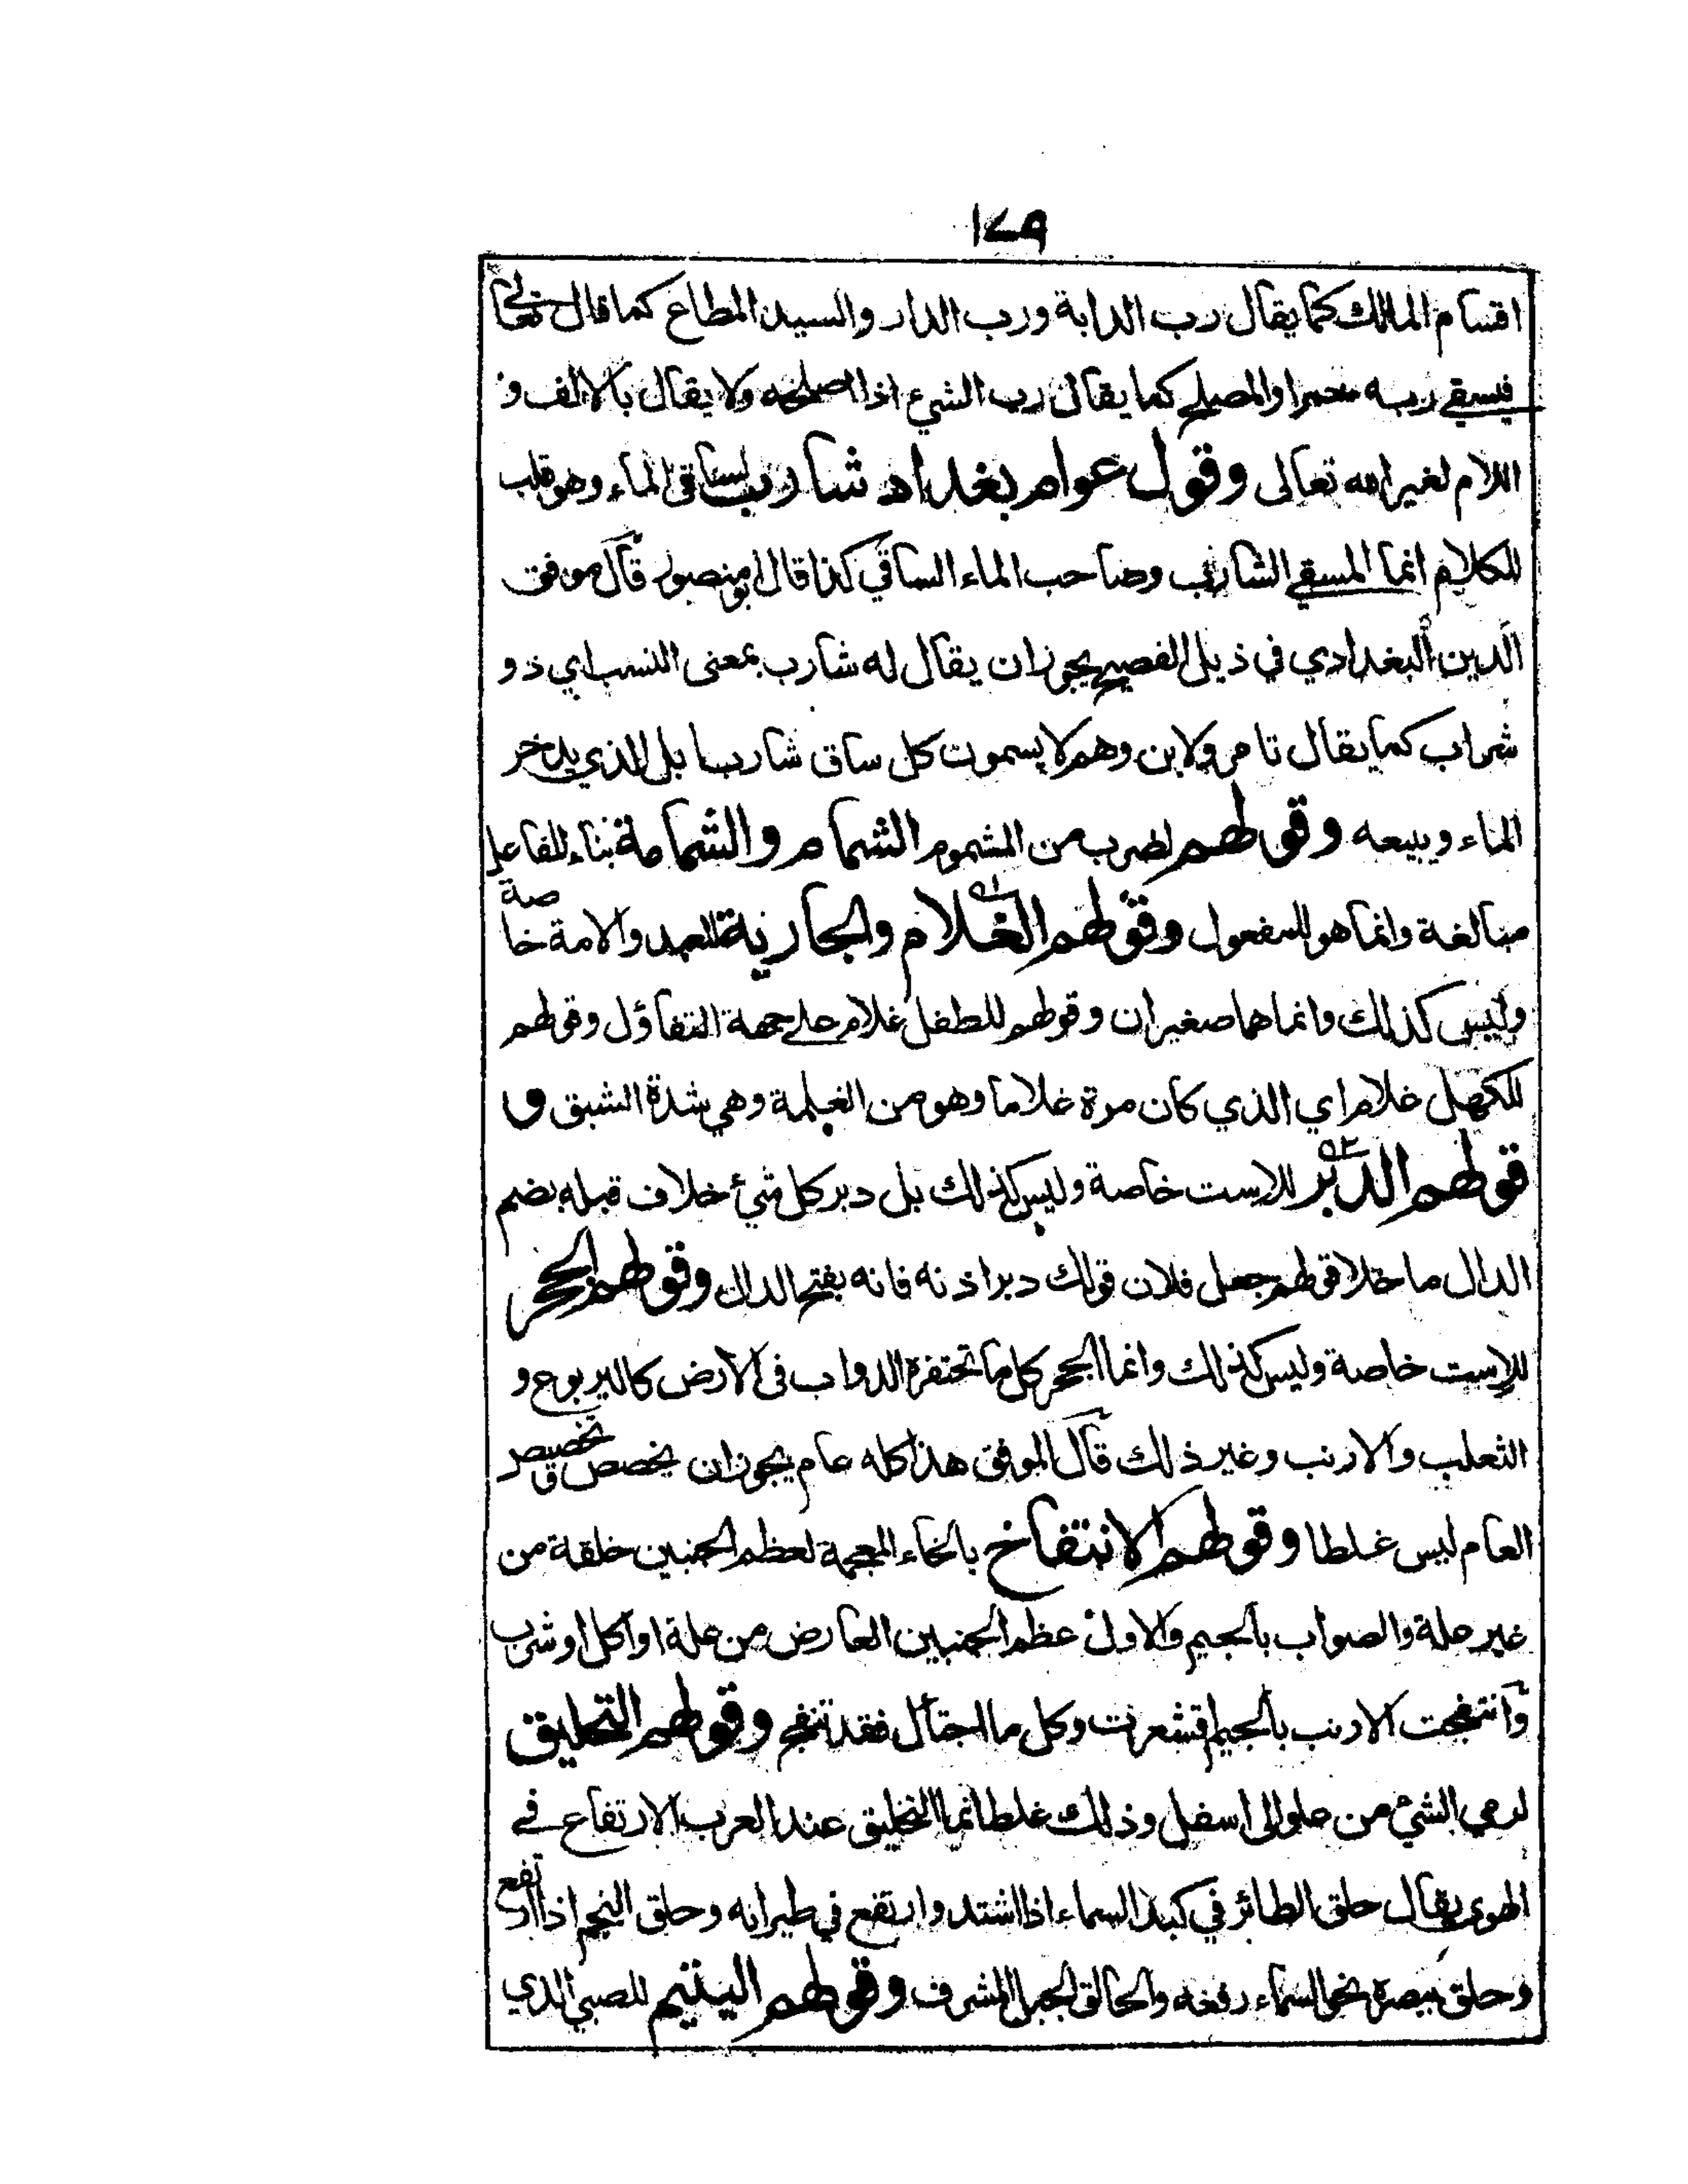 ١٤٩
اقسام المالك كما يقال رب الدابة ورب الدار والسيد المطاع كما قال تعالى
فيسقي ربه خمرا والمصلح كما يقال رب الشيء اذا اصلحه ولا يقال بالالف و
اللام لغير الله تعالى وقول عوام بغداد شارب لساقي الماء وهو قلب
الكلام انما المسقي الشارب وصاحب الماء الساقي كذا قال ابو منصور قال موفق
الدين البغدادي في ذيل الفصيح يجوز ان يقال له شارب بمعنى النسب اي ذو
شراب كما يقال تامر ولابن وهم لا يسمون كل ساق شاربا بل الذي يدخر
الماء ويبيعه وقولهم لضرب من المشموم الشمام والشمامة بناء للفاعل
مبالغة وانما هو للمفعول وقولهم الغلام والجارية للعبد والامة خاصة
وليس كذلك وانما هما صغيران وقولهم للطفل غلام على جهة التفاؤل وقولهم
للكهل غلام اي الذي كان مرة غلاما وهو من الغلمة وهي شدة الشبق و
قولهم الدبر للاست خاصة وليس كذلك بل دبر كل شيء خلاف قبله بضم
الدال ما خلا قولهم جعل فلان قولك دبر اذنه فانه بفتح الدال وقولهم الجحر
للاست خاصة وليس كذلك وانما الجحر كل ما تحتفره الدواب في الارض كاليربوع و
الثعلب والارنب وغير ذلك قال الموفق هذا كله عام يجوز ان يخصص و تخصيص
العام ليس غلطا وقولهم الانتفاخ بالخاء المعجمة لعظم الجنبين خلقة من
غير علة والصواب بالجيم والاول عظم الجنبين العارض من علة او اكل او شرب
وانتفجت الارنب بالجيم اقشعرت وكل ما اجتأل فقد تنفج وقولهم التحليق
لرمي الشيء من علو الى اسفل وذلك غلط انما التحليق عند العرب الارتفاع في
الهوى يقال حلق الطائر في كبد السماء اذا اشتد وارتفع في طيرانه وحلق النجم اذا ارتفع
وحلق ببصره نحو السماء رفعه والحالق الجبل المشرف وقولهم اليتيم للصبي الذي